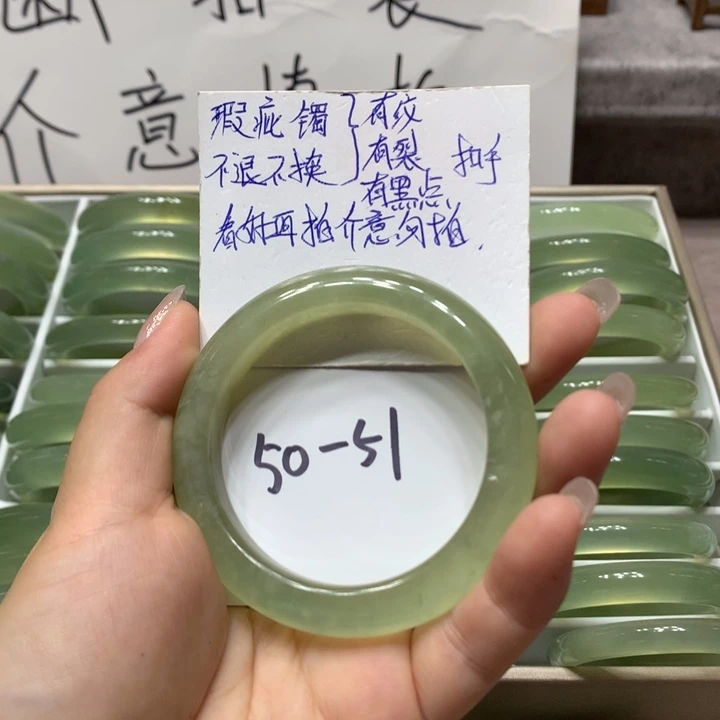 介意慎拍
瑕疵镯 有纹
不退不换 有裂 扣手
有黑点
看好再拍介意勿拍.
50-51